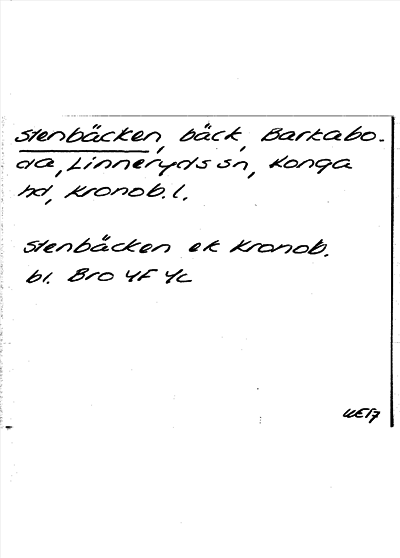 Stenbäcken, bäck, Barkabo-
da, Linneryds sn, Konga
hd, Kronob. l.
Stenbäcken ek Kronob.
bl. Bro 4F 4c